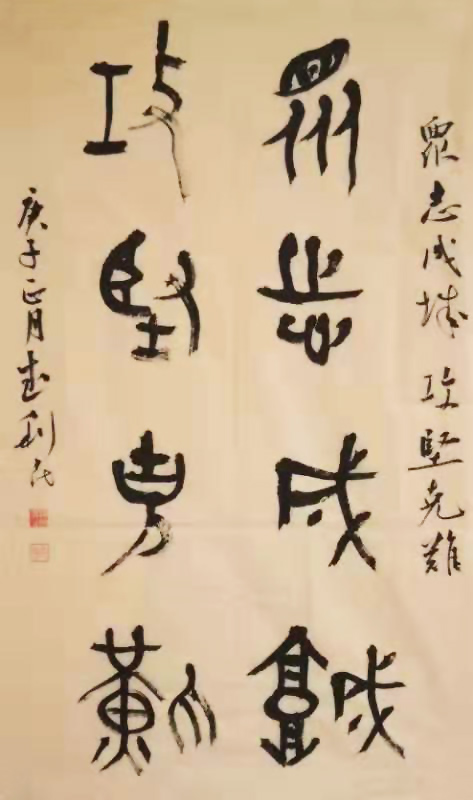 眾志成城 攻堅克難
眾志成城
攻堅克難
庚子正月武利民